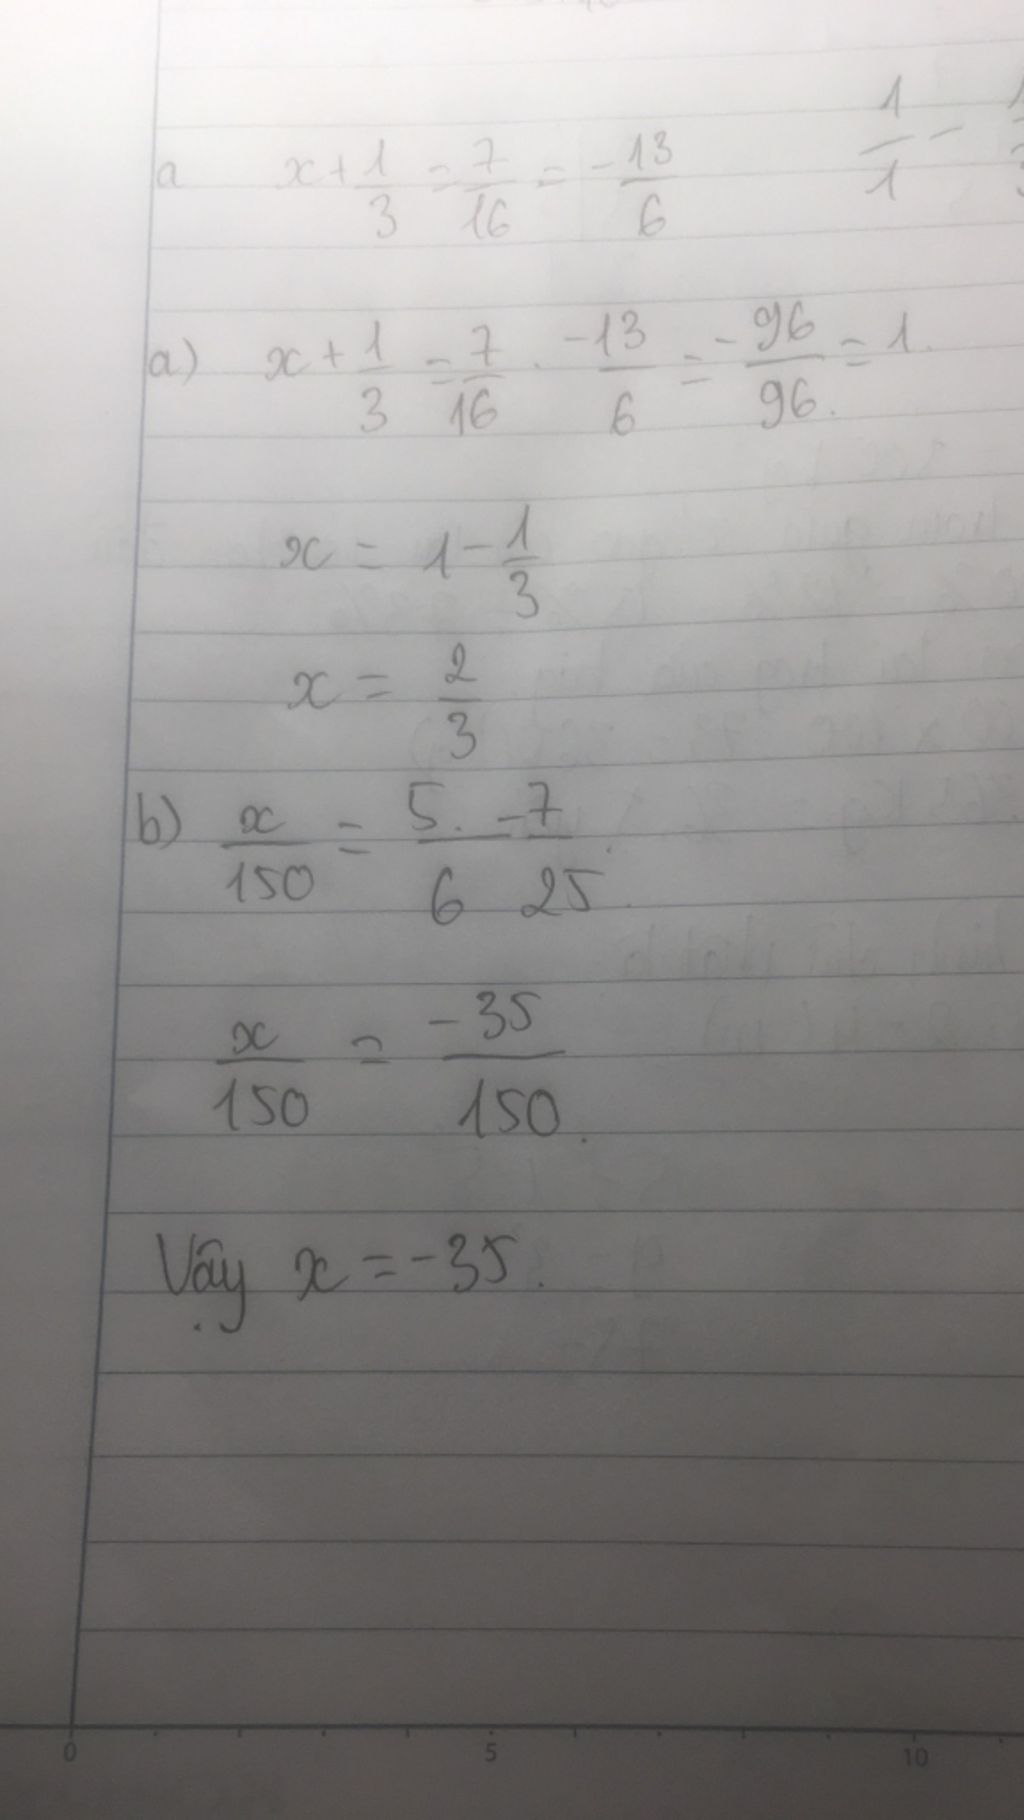 a x + 1/3 = 7/16 = -13/6 1/1 -
a) x + 1/3 = 7/16 . -13/6 = -96/96 = 1.
x = 1 - 1/3
x = 2/3
b) x/150 = 5/6 . -7/25.
x/150 = -35/150.
Vậy x = -35.
0 5 10